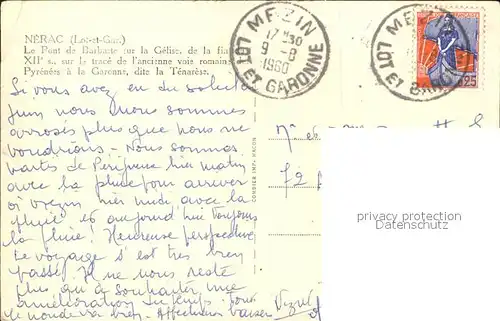 NÉRAC (Lot-et-Gar.)
Le Pont de Barbaste sur la Gélise, de la fin
XIIe s., sur le tracé de l'ancienne voie romaine
Pyrénées à la Garonne, dite la Ténarèse.
MEZIN
17 H30
9 -8
1960
LOT ET GARONNE
MEZIN
LOT ET GARONNE
FRANÇAISE
0,25
COMBIER IMP. MACON
Si vous avez eu du soleil
nous nous sommes
arrosés plus que nous ne
voudrions - Nous sommes
partis de Périgueux hier matin
avec la pluie pour arriver
à hier midi avec la
pluie et aujourd'hui toujours
la pluie! Heureuse perspective
Le voyage s'est très bien
passé. Il ne nous reste
plus qu'à souhaiter une
amélioration du temps. Tout
le monde va bien. Affectueux baisers
privacy protection
Datenschutz